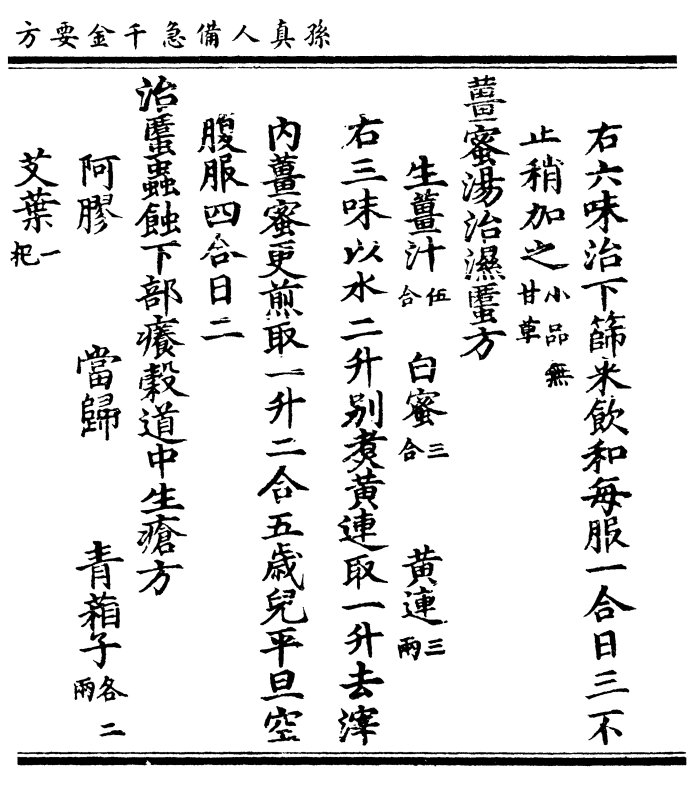 孫真人備急千金要方
右六味治下篩米飲和每服一合日三不
止稍加之小品無甘草
薑蜜湯治濕䘌方
生薑汁伍合 白蜜三合 黃連三兩
右三味以水二升別煑黃連取一升去滓
內薑蜜更煎取一升二合五歲兒平旦空
腹服四合日二
治䘌蟲蝕下部癢穀道中生瘡方
阿膠 當歸 青葙子各二兩
艾葉一把